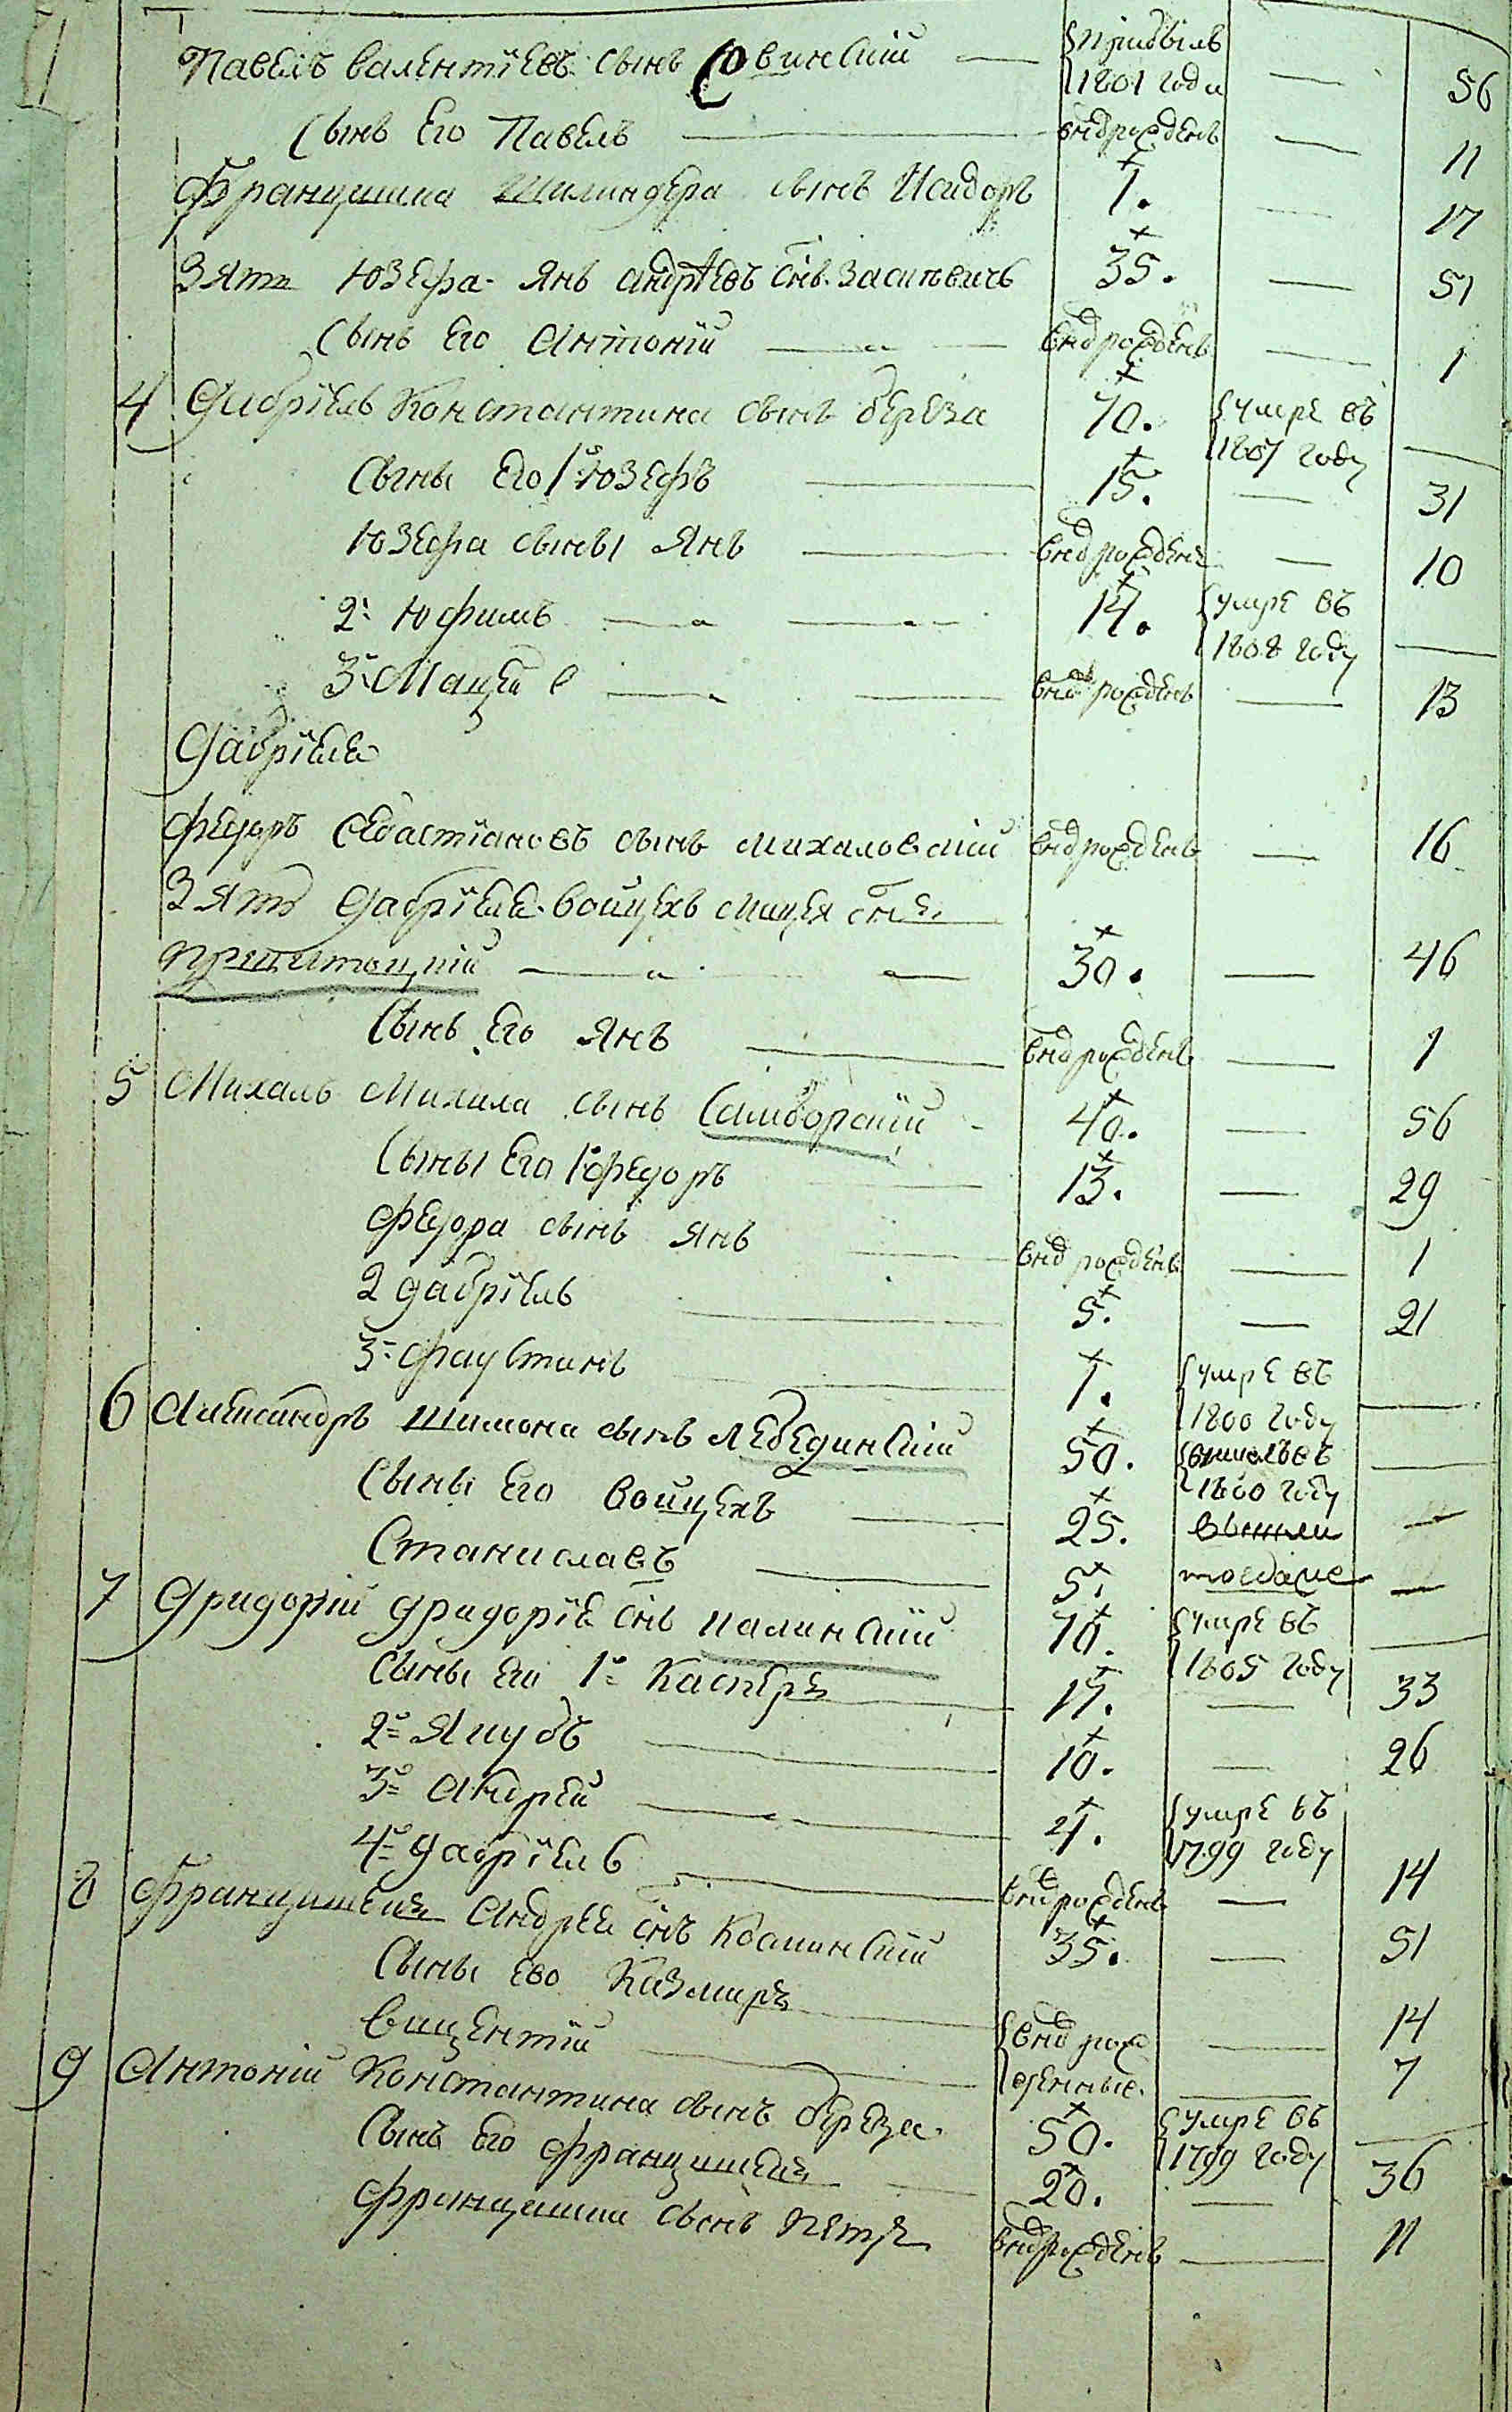 Павелъ валентїевъ сынъ Совинскїй — прибылъ 1801 года — 56
Сынъ Его Павелъ — внд рожденъ — 11
Францишка Шилиндера сынъ Исидоръ 1. — 17
Зять Юзефа Янъ андрѣевъ снъ 35. — 51
Сынъ Его Антонїй — внд рожденъ — 1
4 Габрїель Константина сынъ береза 70. умре въ 1807 году —
Сыны Его 1й Юзефъ — 15. — 31
Юзефа сынъ Янъ — внд рожденъ — 10
2й Юфимъ — 14. умре въ 1808 году —
3й Мацей — внд рожденъ — 13
Габрїеля
Федоръ Себастїановъ сынъ Михаловскїй внд рожденъ — 16
Зять Габрїеля войцехъ Мацея снъ
30. — 46
Сынъ Его Янъ — внд рожденъ — 1
5 Михаль Михала сынъ Самборскїй 40. — 56
Сыны Его 1й Федоръ — 13. — 29
Федора сынъ Янъ — внд рожденъ — 1
2 Габрїель — 5. — 21
3й Фаустинъ — 1. умре въ 1800 году —
6 Александръ Шимона сынъ Лебединскїй 50. въ 1800 году —
Сыны Его Войцехъ — 25. вышли —
Станиславъ — 5. тоедаже —
7 Григорїй Григорїя снъ Калинскїй 70. умре въ 1805 году —
Сыны Его 1й Касперъ — 17. — 33
2й Якубъ — 10. — 26
3й Андрей — 4. умре въ 1799 году
4й Габрїель — внд рожденъ — 14
8 Францишекъ Андрея снъ 35. — 51
Сыны Его Казмиръ — внд рож — 14
Вицентїй — денные. — 7
9 Антонїй Константина сынъ береза. 50. умре въ 1799 году —
Сынъ Его Францишекъ — 20. — 36
Францишка сынъ Петръ внд рожденъ — 11